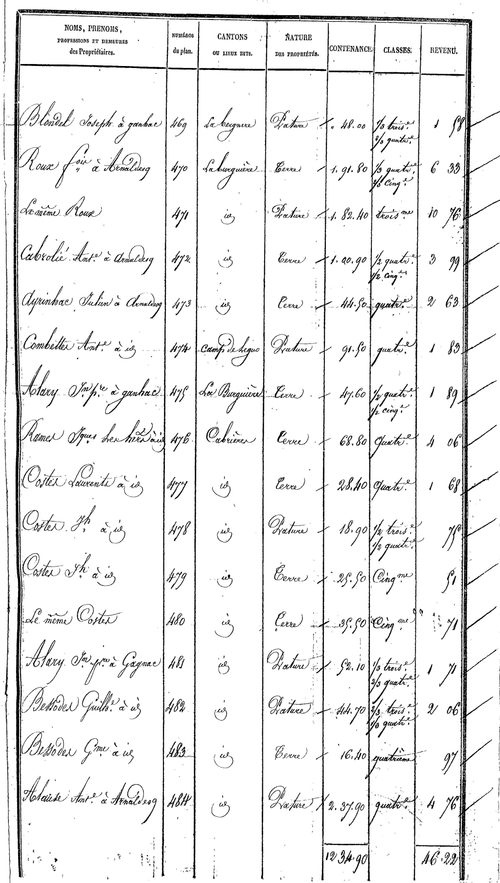 NOMS, PRENOMS, PROFESSIONS ET DEMEURES des Propriétaires. NUMÉROS du plan. CANTONS OU LIEUX DITS. NATURE DES PROPRIÉTÉS. CONTENANCE. CLASSES. REVENU.
Blondel Joseph à ganhac 469 La Pature 48.00 1/3 trois.e 1 58
2/3 quatr.e
Roux à Arnaldesq 470 Laburguière Terre 1. 91. 80 quatr.e 6 33
cinq.e
Le même Roux 471 id Pature 1. 82. 40 trois.me 10 76
Cabrolié Ant.e à Arnaldesq 472 id Terre 1. 90. 90 1/2 quatr.e 3 99
1/2 cinq.e
Ayrinhac Julien à Arnaldesq 473 id Terre 44.50 quatr.e 2 63
Combettes Ant.e à id 474 Camp de Pature 91.50 quatr.e 1 83
Alary à ganhac 475 La Burguière Terre 47.60 1/2 quatr.e 1 89
1/2 cinq.e
Rames à id 476 Cabrières Terre 68.80 Quatr.e 4 06
Costes Laurent à id 477 id Terre 28.40 Quatr.e 1 68
Costes Jh à id 478 id Pature 18.90 1/2 trois.e 75
1/2 quatr.e
Costes Jh à id 479 id Terre 25.50 Cinq.me 51
Le même Costes 480 id Terre 35.50 Cinq.me 71
Alary à Gagnac 481 id Pature 52.10 1/3 trois.e 1 71
2/3 quatr.e
Bessodes Guilh.e à id 482 id Pature 44.70 trois.e 2 06
quatr.e
Bessodes G.me à id 483 id Terre 16.40 quatrième 97
Ant.e à Arnaldesq 484 id Pature 2. 37. 90 quatr.e 4 76
12 34. 90 46. 22